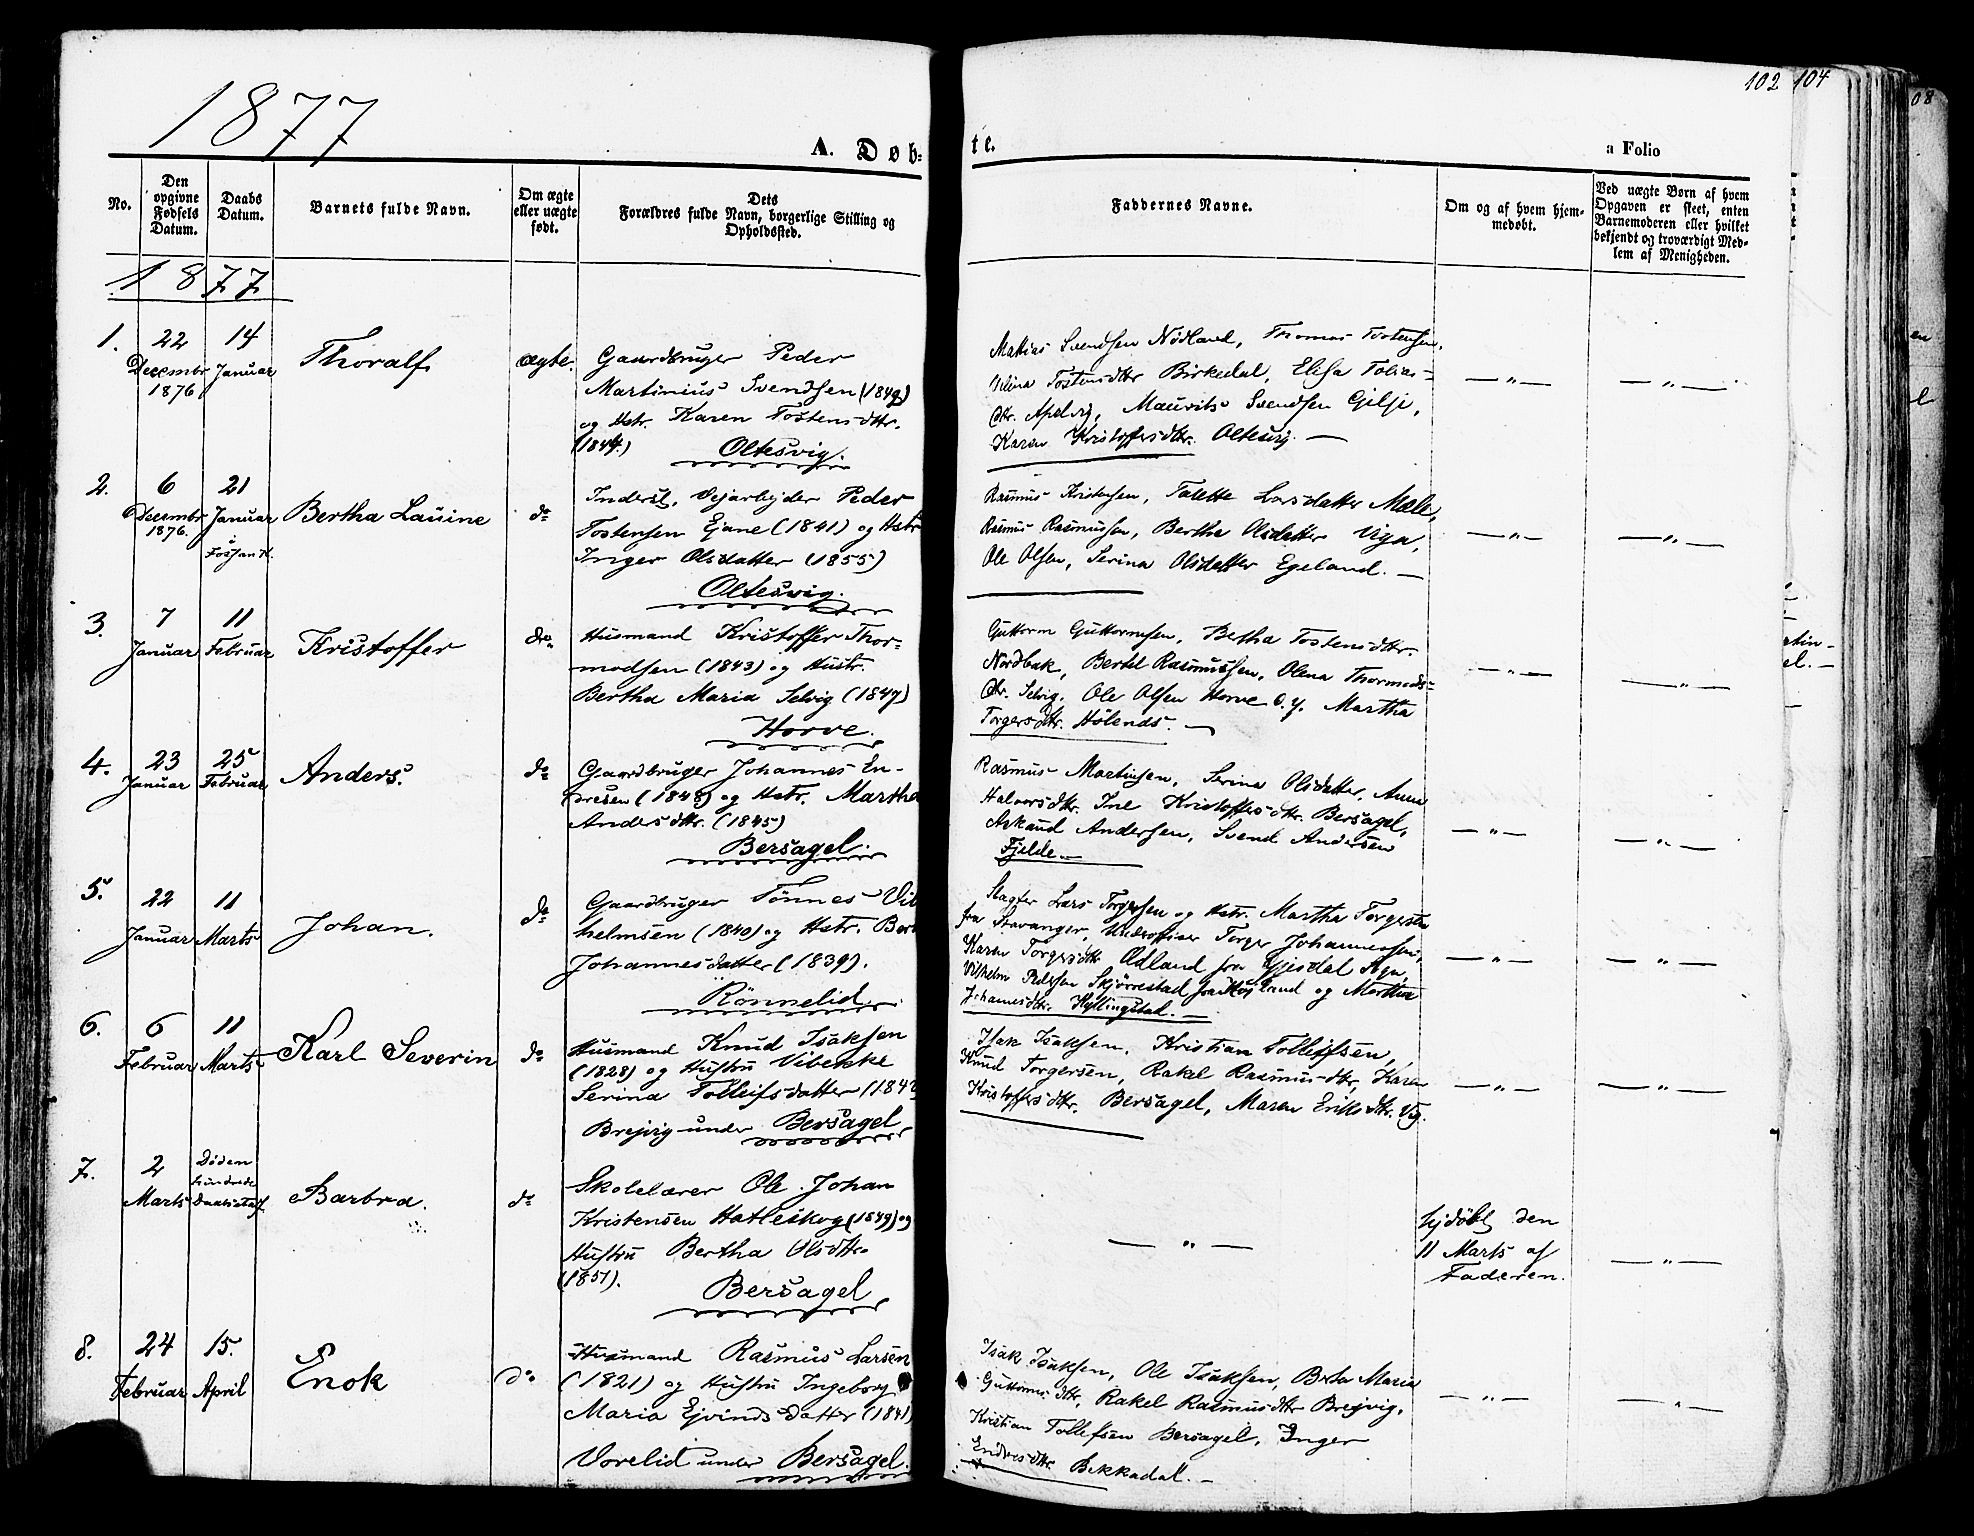 102 104
08
1877
A. Døb-
te.
a Folio
No.
Den opgivne Fødsels Datum.
Daabs Datum.
Barnets fulde Navn.
Om ægte eller uægte født.
Dets Forældres fulde Navn, borgerlige Stilling og Opholdssted.
Faddernes Navne.
Om og af hvem hjem-
medøbt.
Ved uægte Børn af hvem
Opgaven er skeet, enten
Barnemoderen eller hvilket
bekjendt og troværdigt Med-
lem af Menigheden.
1877
1.
22 Decembr 1876
14 Januar
Thoralf
ægte.
Gaardbruger Peder
Martinius Svendsen (1849)
og Hstr. Karen Tostensdttr.
(1844.) Oltesvig.
Mathias Svendsen Nødland, Thomas Tostensen,
Tostensdttr Birkedal, Elisa Tobias-
dtr. Apelvig, Maurits Svendsen Gilje,
Karen Kristoffersdttr. Oltesvig. —
— " —
— " —
2.
6 Decembr 1876.
21 Januar i Fossan K.
Bertha Lauine
do
Inderst, Vejarbejder Peder
Tostensen Ejane (1841) og Hstr
Inger Olsdatter (1855)
Oltesvig.
Rasmus Kristensen, Talette Larsdatter Mæle,
Rasmus Rasmussen, Bertha Olsdatter Viga,
Ole Olsen, Serina Olsdatter Egeland. —
— " —
— " —
3.
7 Januar
11 Februar
Kristoffer
do.
Husmand Kristoffer Thor-
modsen (1843) og Hustr.
Bertha Maria Selvig (1847)
Horve.
Guttorm Guttormsen, Bertha Tostensdttr.
Nordbak, Bertel Rasmussen, Olena Thormods-
dtr. Selvig. Ole Olsen Horve o. y. Martha
Torgersdtr. Hølends. —
— " —
— " —
4.
23 Januar
25 Februar
Anders.
do
Gaardbruger Johannes En-
dresen (1848) og Hstr. Martha
Andersdttr. (1845)
Bersagel.
Rasmus Martinsen, Serina Olsdatter, Anna
Halvorsdtr. Ine Kristoffersdtr. Bersagel,
Askaud Andersen, Svend Andersen
Fjelde. —
— " —
— " —
5.
22 Januar
11 Marts
Johan.
do
Gaardbruger Tönnes Vil
helmsen (1840) og Hstr. Bert
Johannesdatter (1839).
Rönnelid.
Slagter Lars Torgersen og Hstr. Martha Torgersdtr
fra Stavanger, Underofficer Torger Johannessen,
Karen Torgersdtr Ødland fra Gjesdal Sgn,
Vilhelm Pedersen Skjørrestad fra Høiland og Martha
Johannesdtr. Hyllingstad. —
— " —
— " —
6.
6 Februar
11 Marts
Karl Severin
do
Husmand Knud Isaksen
(1828) og Hustru Vibekke
Serina Tolleifsdatter (184
Brejvig under Bersagel
Isak Isaksen, Kristian Tolleifsen,
Knud Torgersen, Rakel Rasmusdtr, Karen
Kristoffersdtr. Bersagel, Maren Eriksdtr. Vig.
— " —
— " —
7.
2 Marts
Døden hindrede Daabstaf.
Barbra.
do
Skolelærer Ole Johan
Kristensen Hatleskog (1849) og
Hustru Bertha Olsdtr.
(1851).
Bersagel
— " —
hjdøbt den
11 Marts af
Faderen.
— " —
8.
24 Februar
15. April
Enok
do.
Husmand Rasmus Larsen
(1821) og Hustru Ingeborg
Maria Ejvindsdatter (1841)
Vorelid under Bersagel.
Isak Isaksen, Ole Isaksen, Berta Maria
Guttormsdtr, Rakel Rasmusdtr Brejvig,
Kristian Tollefsen Bersagel, Inger
Endresdtr. Bekkadal. —
— " —
— " —